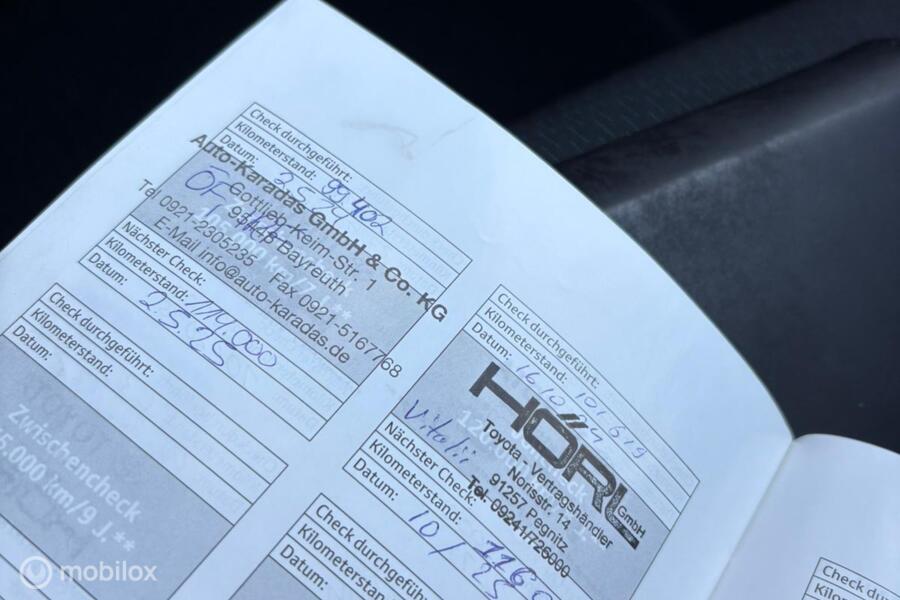 Check durchgeführt:
Kilometerstand: 99402
Datum:
Auto-Karadas GmbH & Co. KG
Gottlieb-Keim-Str. 1
95448 Bayreuth
Tel 0921-2305235 Fax 0921-5167768
E-Mail info@auto-karadas.de
Nächster Check:
Kilometerstand: 114.000
Datum: 2.5.25
Check durchgeführt:
Kilometerstand:
Datum:
Zwischencheck
5.000 km/9 J.**
Check durchgeführt:
Kilometerstand: 101.619
Datum: 16/10 24
HÖRL GmbH
Toyota - Vertragshändler
Norisstr. 14
91257 Pegnitz
Tel. 09241/726000
Vitalii
Nächster Check:
Kilometerstand:
Datum: 10/
Check durchgeführt:
Kilometerstand:
Datum:
Check
Kilom
mobilox